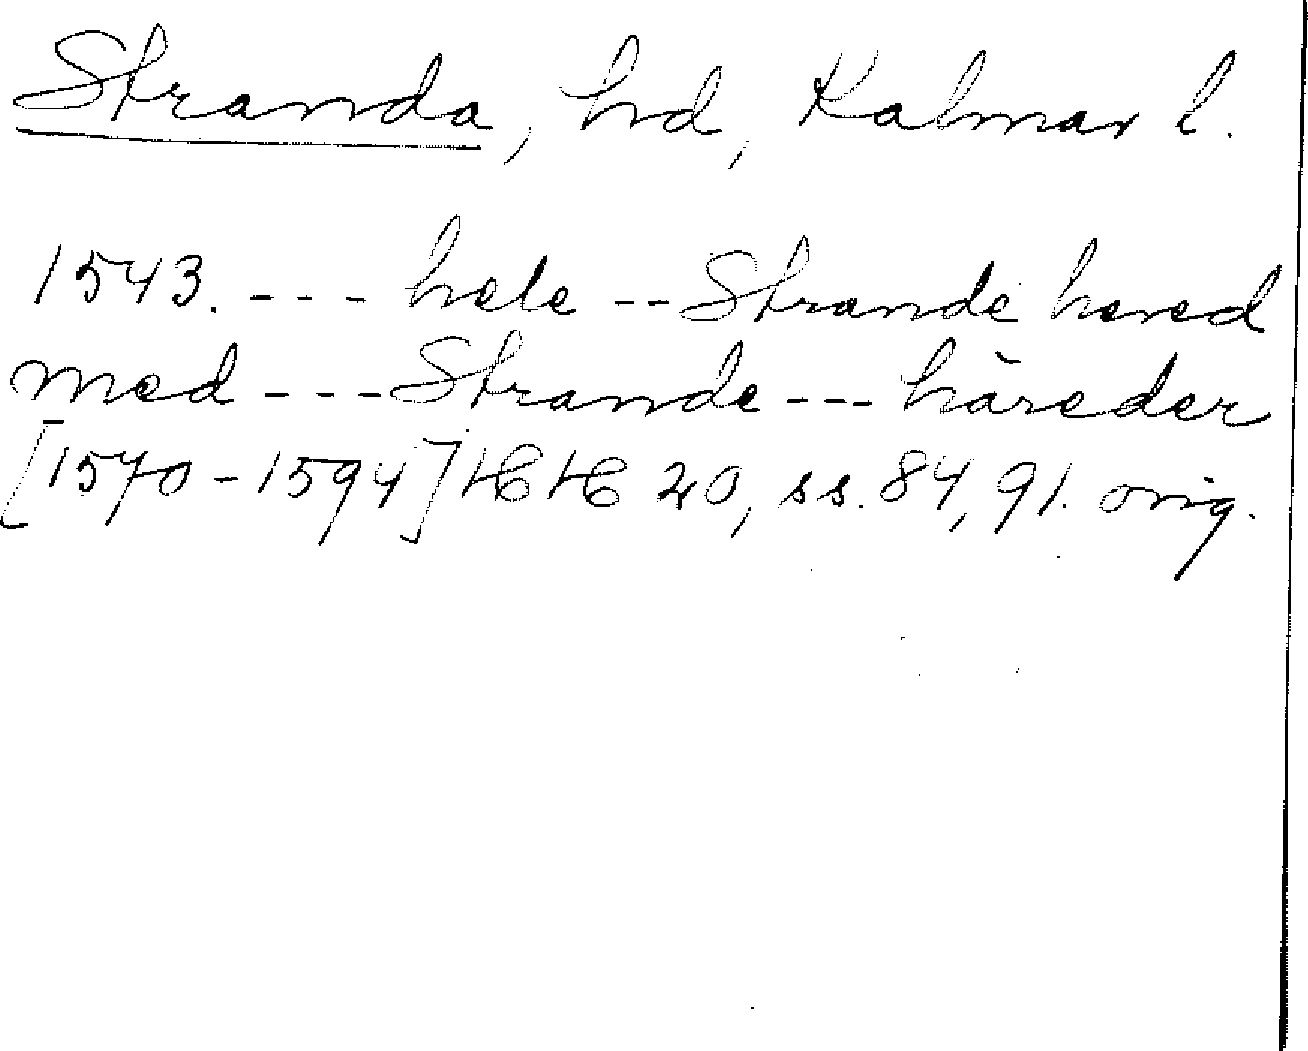 Stranda, hd, Kalmar l.
1543. --- hele -- Strande hered
med --- Strande --- häreder
[1570-1594] HH 20, ss. 84, 91. orig.